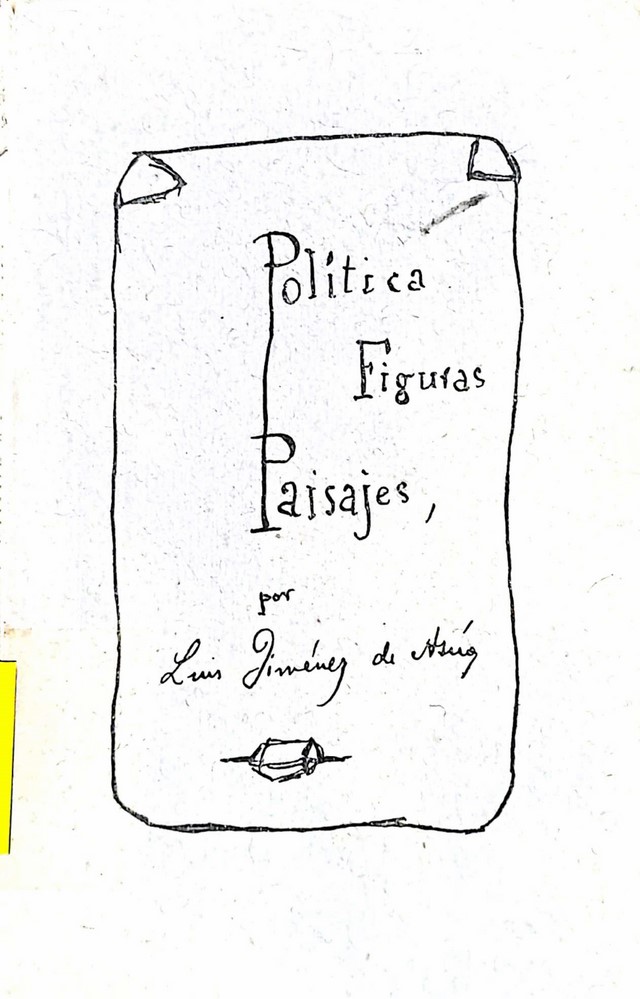 Política
Figuras
Paisajes,
por
Luis Jiménez de Asúa